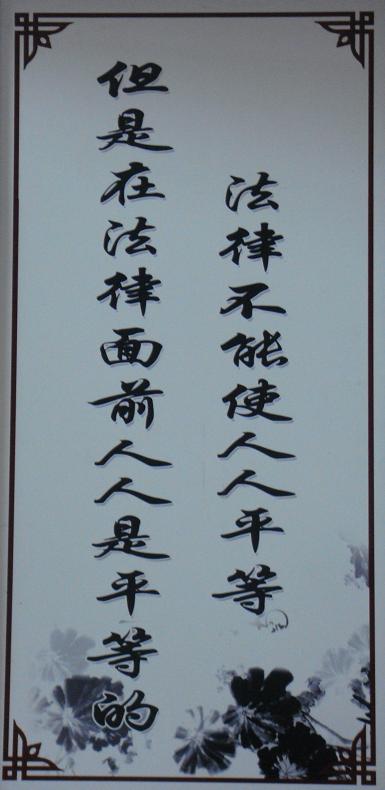 法律不能使人人平等
但是在法律面前人人是平等的